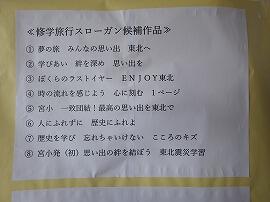 ≪修学旅行スローガン候補作品≫
① 夢の旅　みんなの思い出　東北へ
② 学びあい　絆を深め　思い出を
③ ぼくらのラストイヤー　ENJOY東北
④ 時の流れを感じよう　心に刻む　1ページ
⑤ 宮小　一致団結！最高の思い出を東北で
⑥ 人にふれずに　歴史にふれよ
⑦ 歴史を学び　忘れちゃいけない　こころのキズ
⑧ 宮小発（初）思い出の絆を結ぼう　東北震災学習